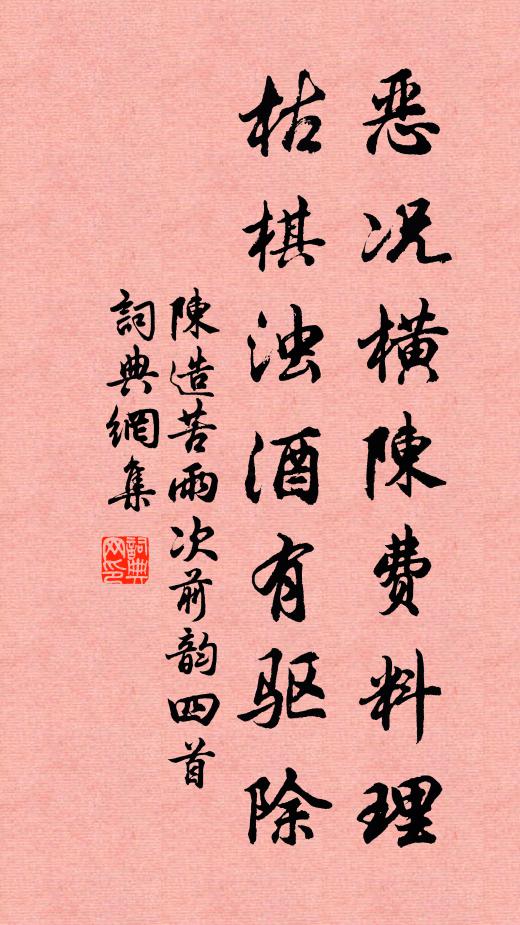 恶况横陳费料理
枯棋浊酒有驱除
陳造苦雨次前韵四首
詞典網集
詞典网印